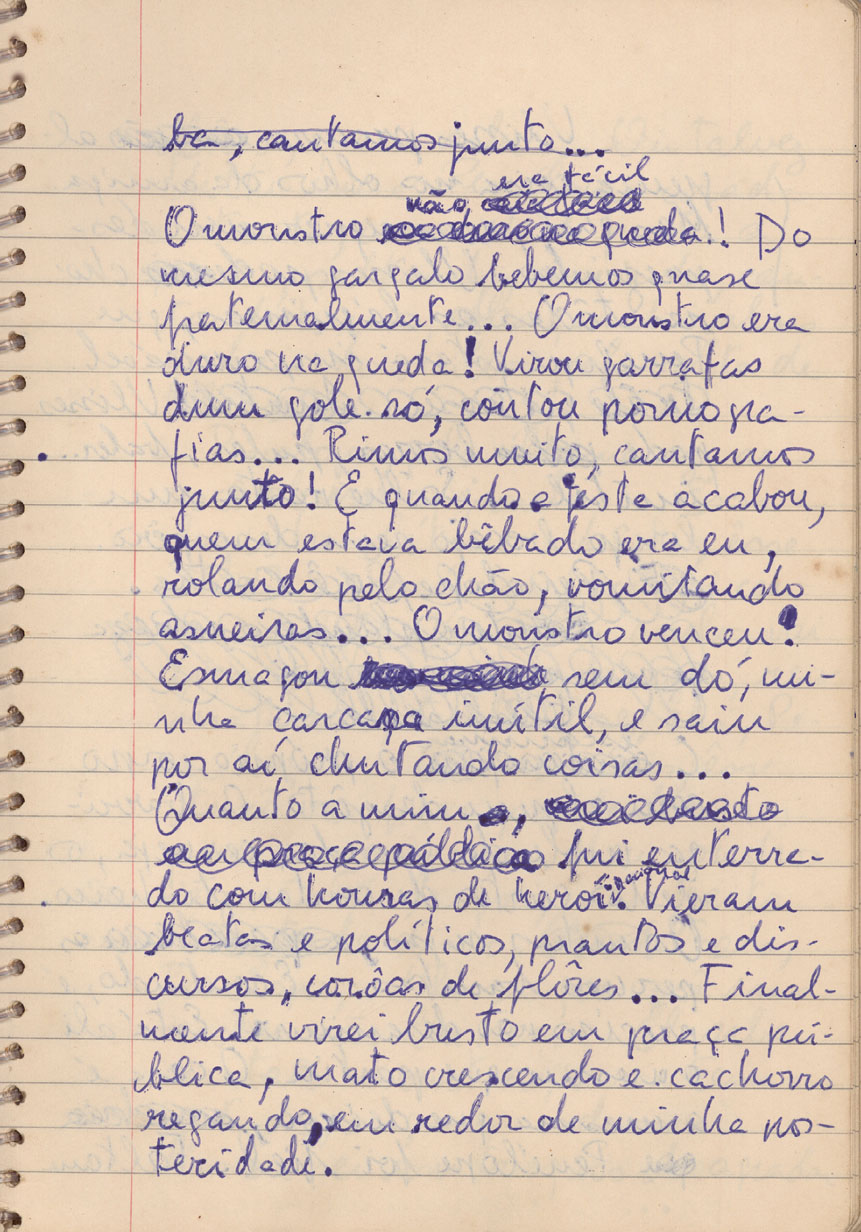 ba, cantamos junto...
era fácil
não
O monstro ! Do
mesmo gargalo bebemos quase
paternalmente... O monstro era
duro na queda! Virou garrafas
dum gole só, contou pornogra-
fias... Rimos muito, cantamos
junto! E quando a festa acabou,
quem estava bêbado era eu,
rolando pelo chão, vomitando
asneiras... O monstro venceu!
Esmagou sem dó, mi-
nha carcaça inútil, e saiu
por aí, chutando coisas...
Quanto a mim,
fui enterra-
nacional
do com honras de herói. Vieram
beatas e políticos, prantos e dis-
cursos, corôas de flôres... Final-
mente virei busto em praça pú-
blica, mato crescendo e cachorro
regando, em redor de minha pos-
teridade.